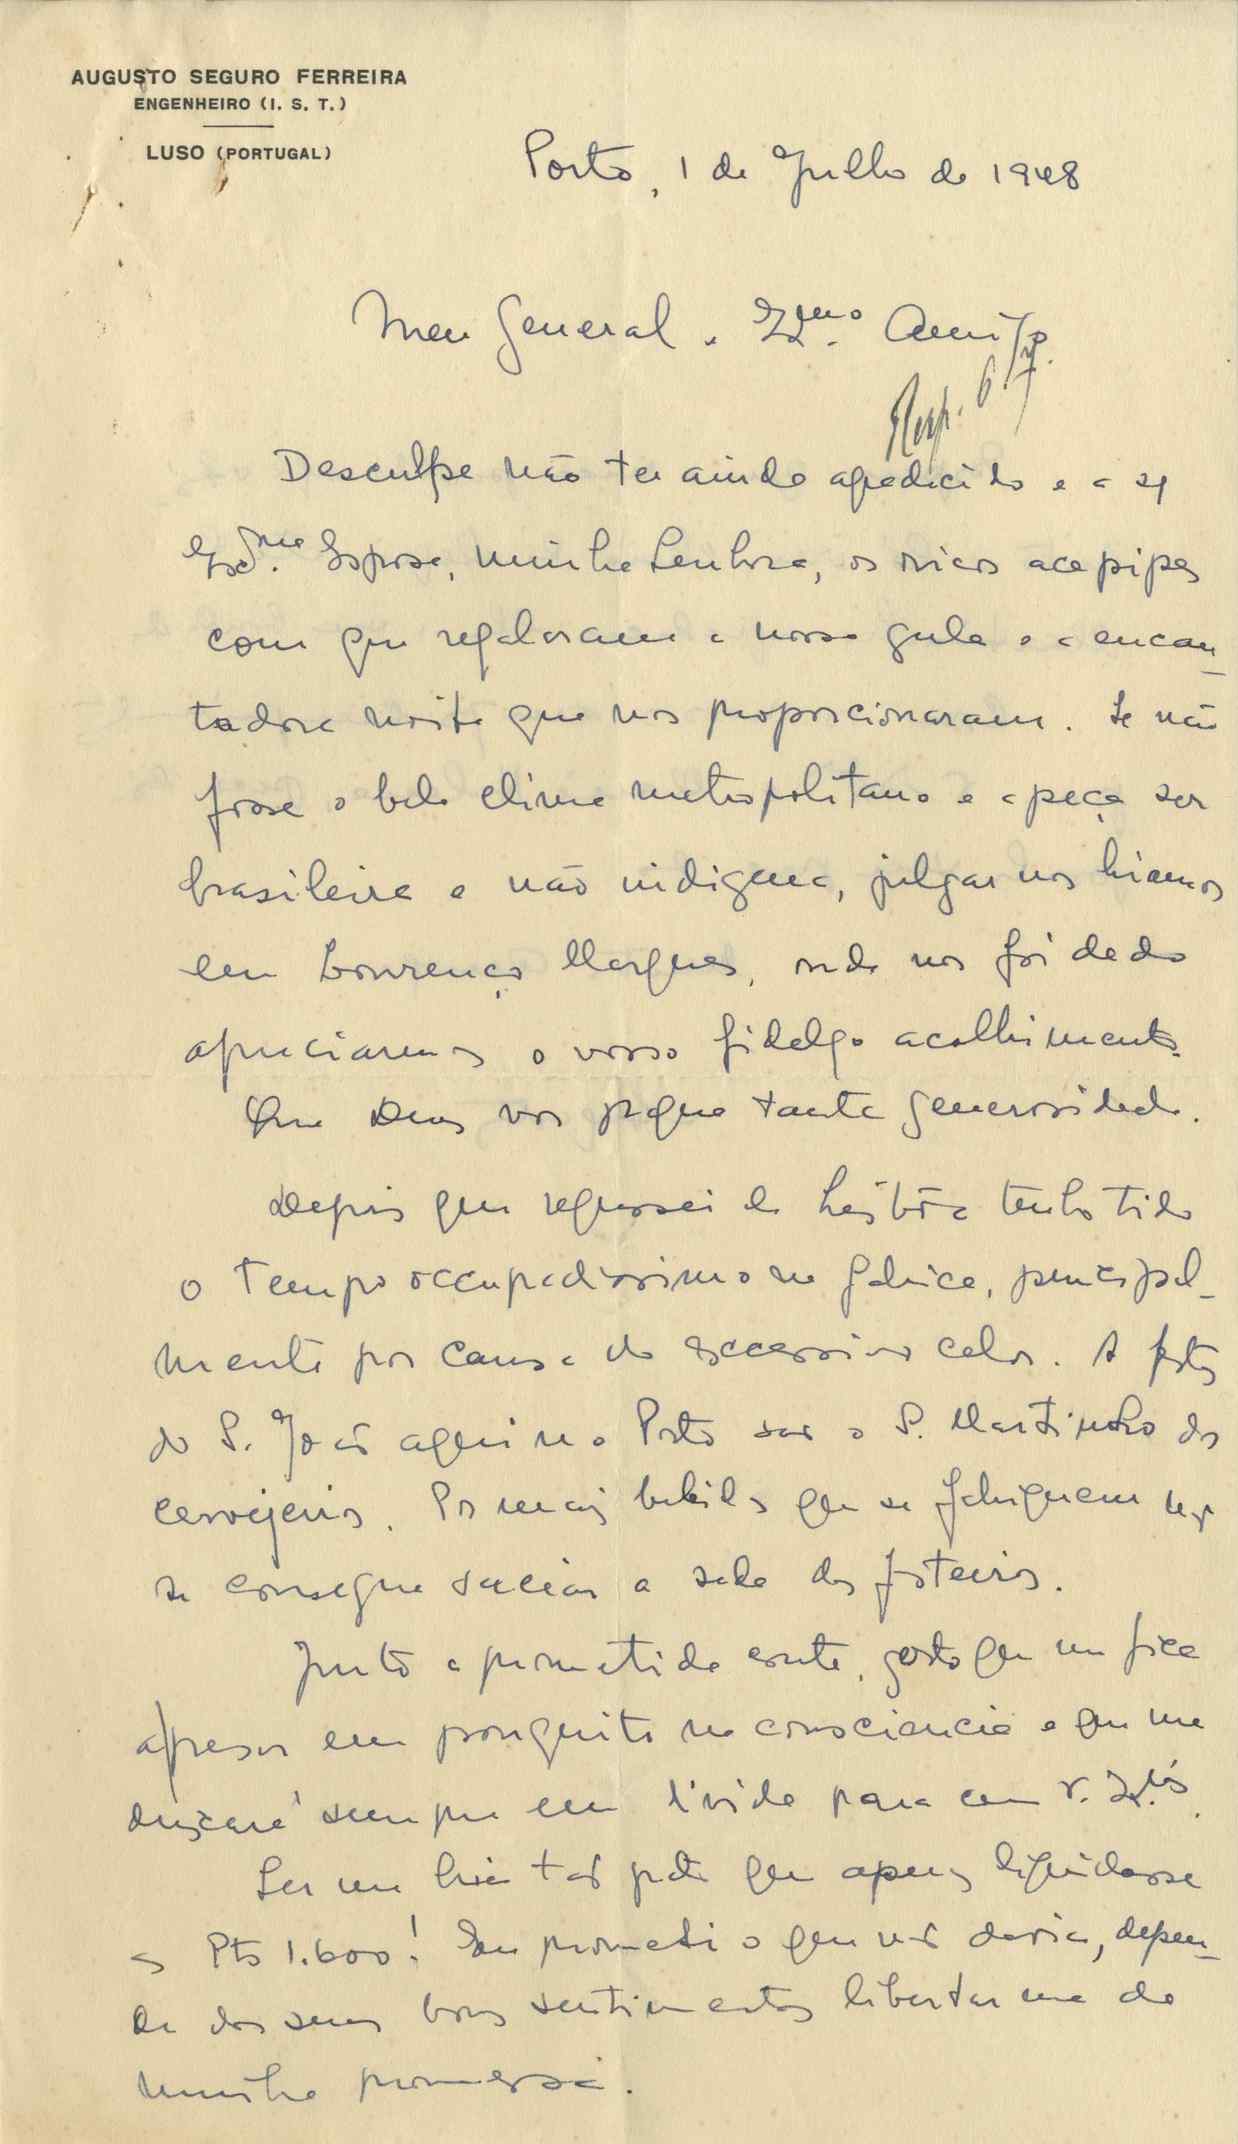 AUGUSTO SEGURO FERREIRA
ENGENHEIRO (I. S. T.)
LUSO (PORTUGAL)
Porto, 1 de Julho de 1948
Meu General e Exmo. Amigo.
Resp. 6/7
Desculpe não ter ainda agradecido e a
Exma. Esposa, minha Senhora, os ricos acepipes
com que regalaram a nossa gula e a encan-
tadora noite que nos proporcionaram. Se não
fosse o belo clima metropolitano e a peça ser
brasileira e não indigena, julgar nos hiamos
em Lourenço Marques, onde nos foi dado
apreciarmos o vosso fidalgo acolhimento.
Que Deus vos pague tanta generosidade.
Depois que regressei de Lisbôa tenho tido
o tempo occupadissimo na fabrica, principal-
mente por causa do excessivo calor. A festa
do S. João aqui no Porto é o S. Martinho dos
cervejeiros. Por mais bebidas que se fabriquem não
se consegue saciar a sede dos festeiros.
Junto a prometida conta, gesto que me fica
a pesar em porquito na consciencia e que me
deixará sempre em divida para com V. Excias.
Ser me hia tão grato que apenas liquidasse
os Pts 1.600! Eu prometi o que não devia, depen-
de dos seus bons sentimentos libertar me da
minha promessa.